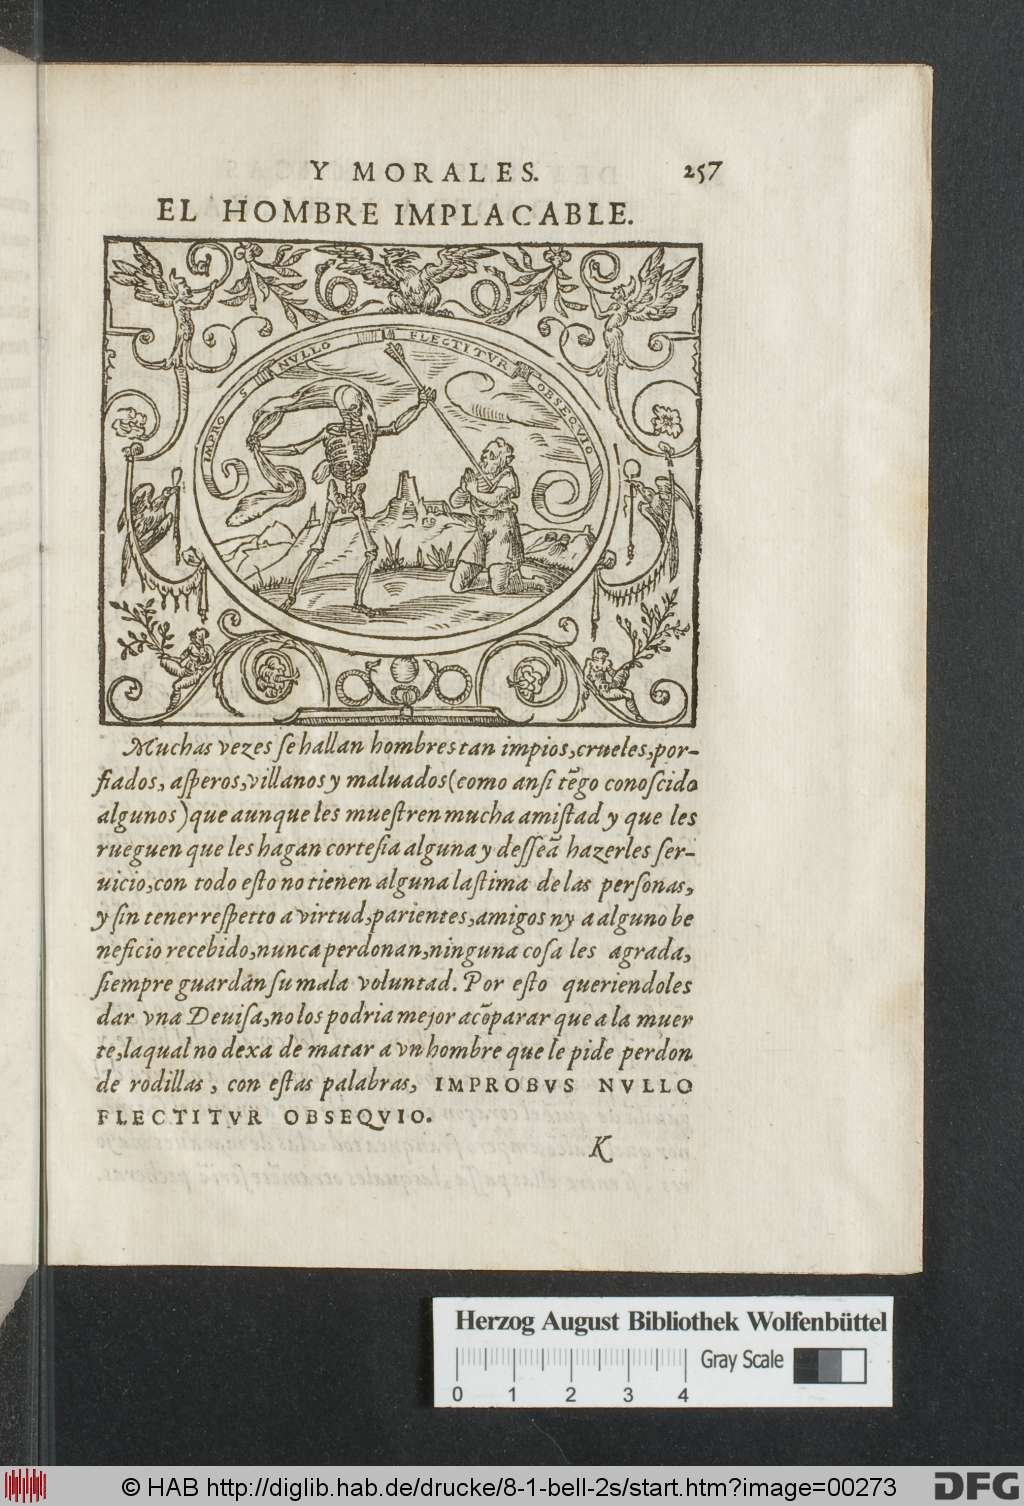 Y MORALES. 257
EL HOMBRE IMPLACABLE.
IMPRO S NVLLO FLECTITVR OBSEQVIO
Muchas vezes ſe hallan hombres tan impios, crueles, por-
fiados, aſperos, villanos y maluados (como anſi tẽgo conoſcido
algunos) que aunque les mueſtren mucha amiſtad y que les
rueguen que les hagan corteſia alguna y deſſeã hazerles ſer-
uicio, con todo eſto no tienen alguna laſtima de las perſonas,
y ſin tener reſpetto a virtud, parientes, amigos ny a alguno be
neficio recebido, nunca perdonan, ninguna coſa les agrada,
ſiempre guardan ſu mala voluntad. Por eſto queriendoles
dar vna Deuiſa, no los podria mejor acõparar que a la muer
te, laqual no dexa de matar a vn hombre que le pide perdon
de rodillas, con eſtas palabras, IMPROBVS NVLLO
FLECTITVR OBSEQVIO.
K
Herzog August Bibliothek Wolfenbüttel
Gray Scale
0 1 2 3 4
© HAB http://diglib.hab.de/drucke/8-1-bell-2s/start.htm?image=00273
DFG